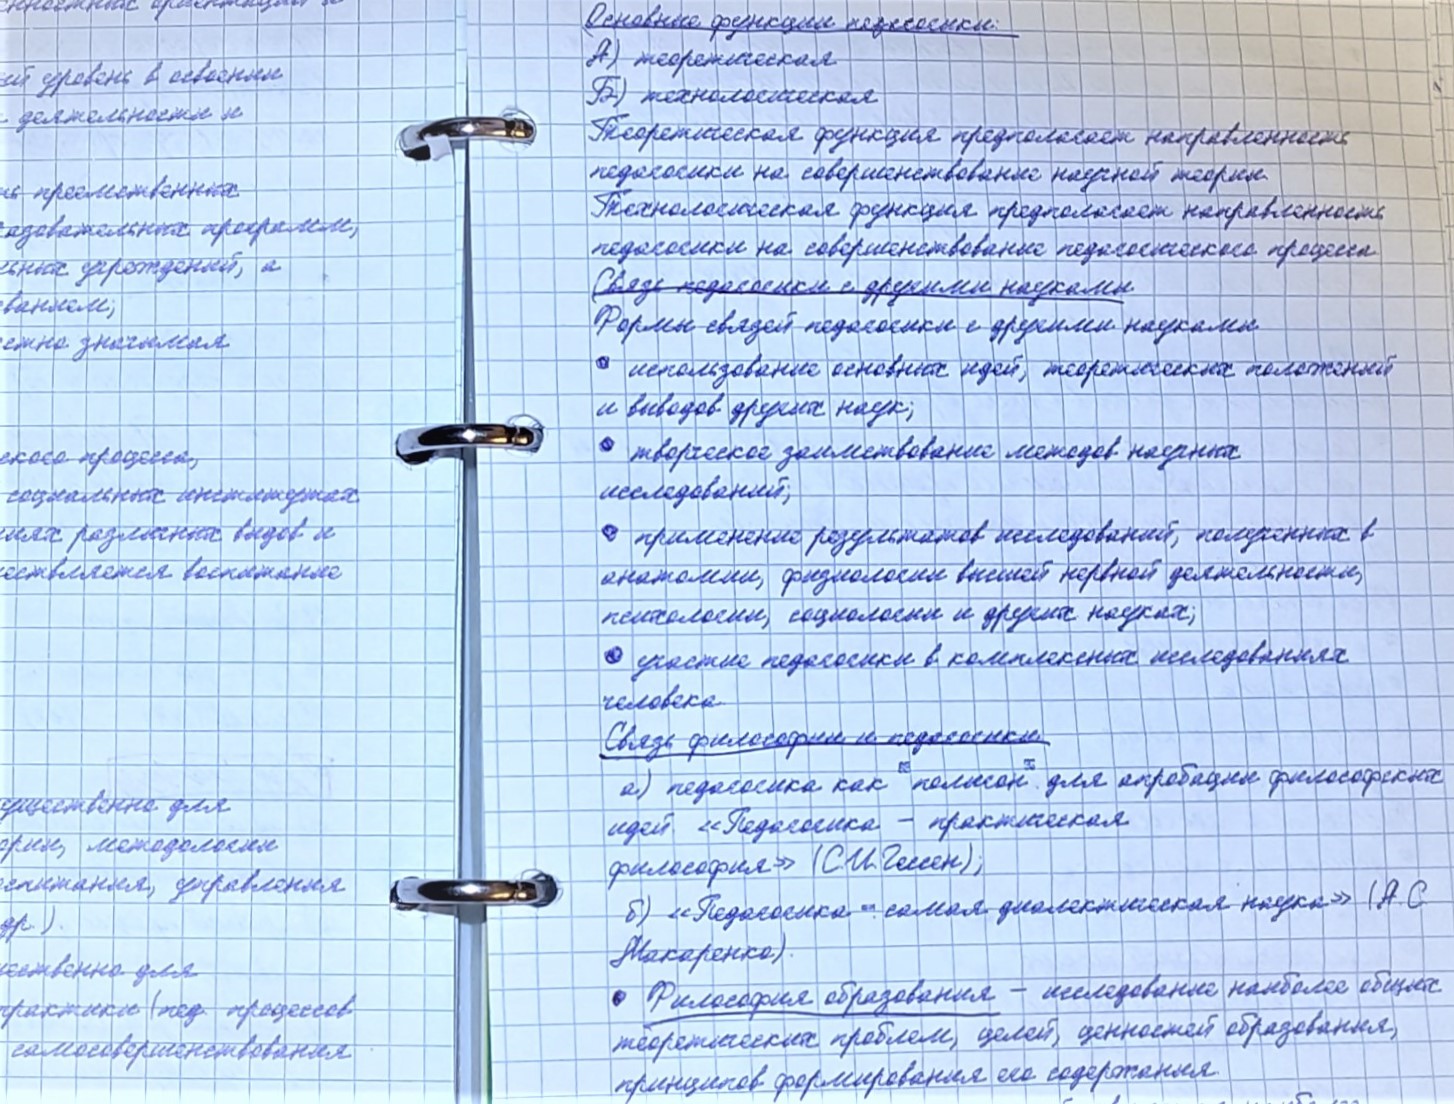 ий уровень в освоении
деятельности и
преемственных
образовательных программ,
учреждений, а
значимая
процесса,
социальных институтах
различных видов и
воспитание
для
методологии
управления
др.).
для
практики (пед. процессов
самосовершенствования
Основные функции педагогики:
А) теоретическая
Б) технологическая
Теоретическая функция предполагает направленность
педагогики на совершенствование научной теории.
Технологическая функция предполагает направленность
педагогики на совершенствование педагогического процесса
Связь педагогики с другими науками
Формы связей педагогики с другими науками
• использование основных идей, теоретических положений
и выводов других наук;
• творческое заимствование методов научных
исследований;
• применение результатов исследований, полученных в
анатомии, физиологии высшей нервной деятельности,
психологии, социологии и других науках;
• участие педагогики в комплексных исследованиях
человека.
Связь философии и педагогики
а) педагогика как "полигон" для апробации философских
идей. «Педагогика – практическая
философия» (С.И. Гессен);
б) «Педагогика – самая диалектическая наука» (А.С.
Макаренко).
• Философия образования – исследование наиболее общих
теоретических проблем, целей, ценностей образования,
принципов формирования его содержания